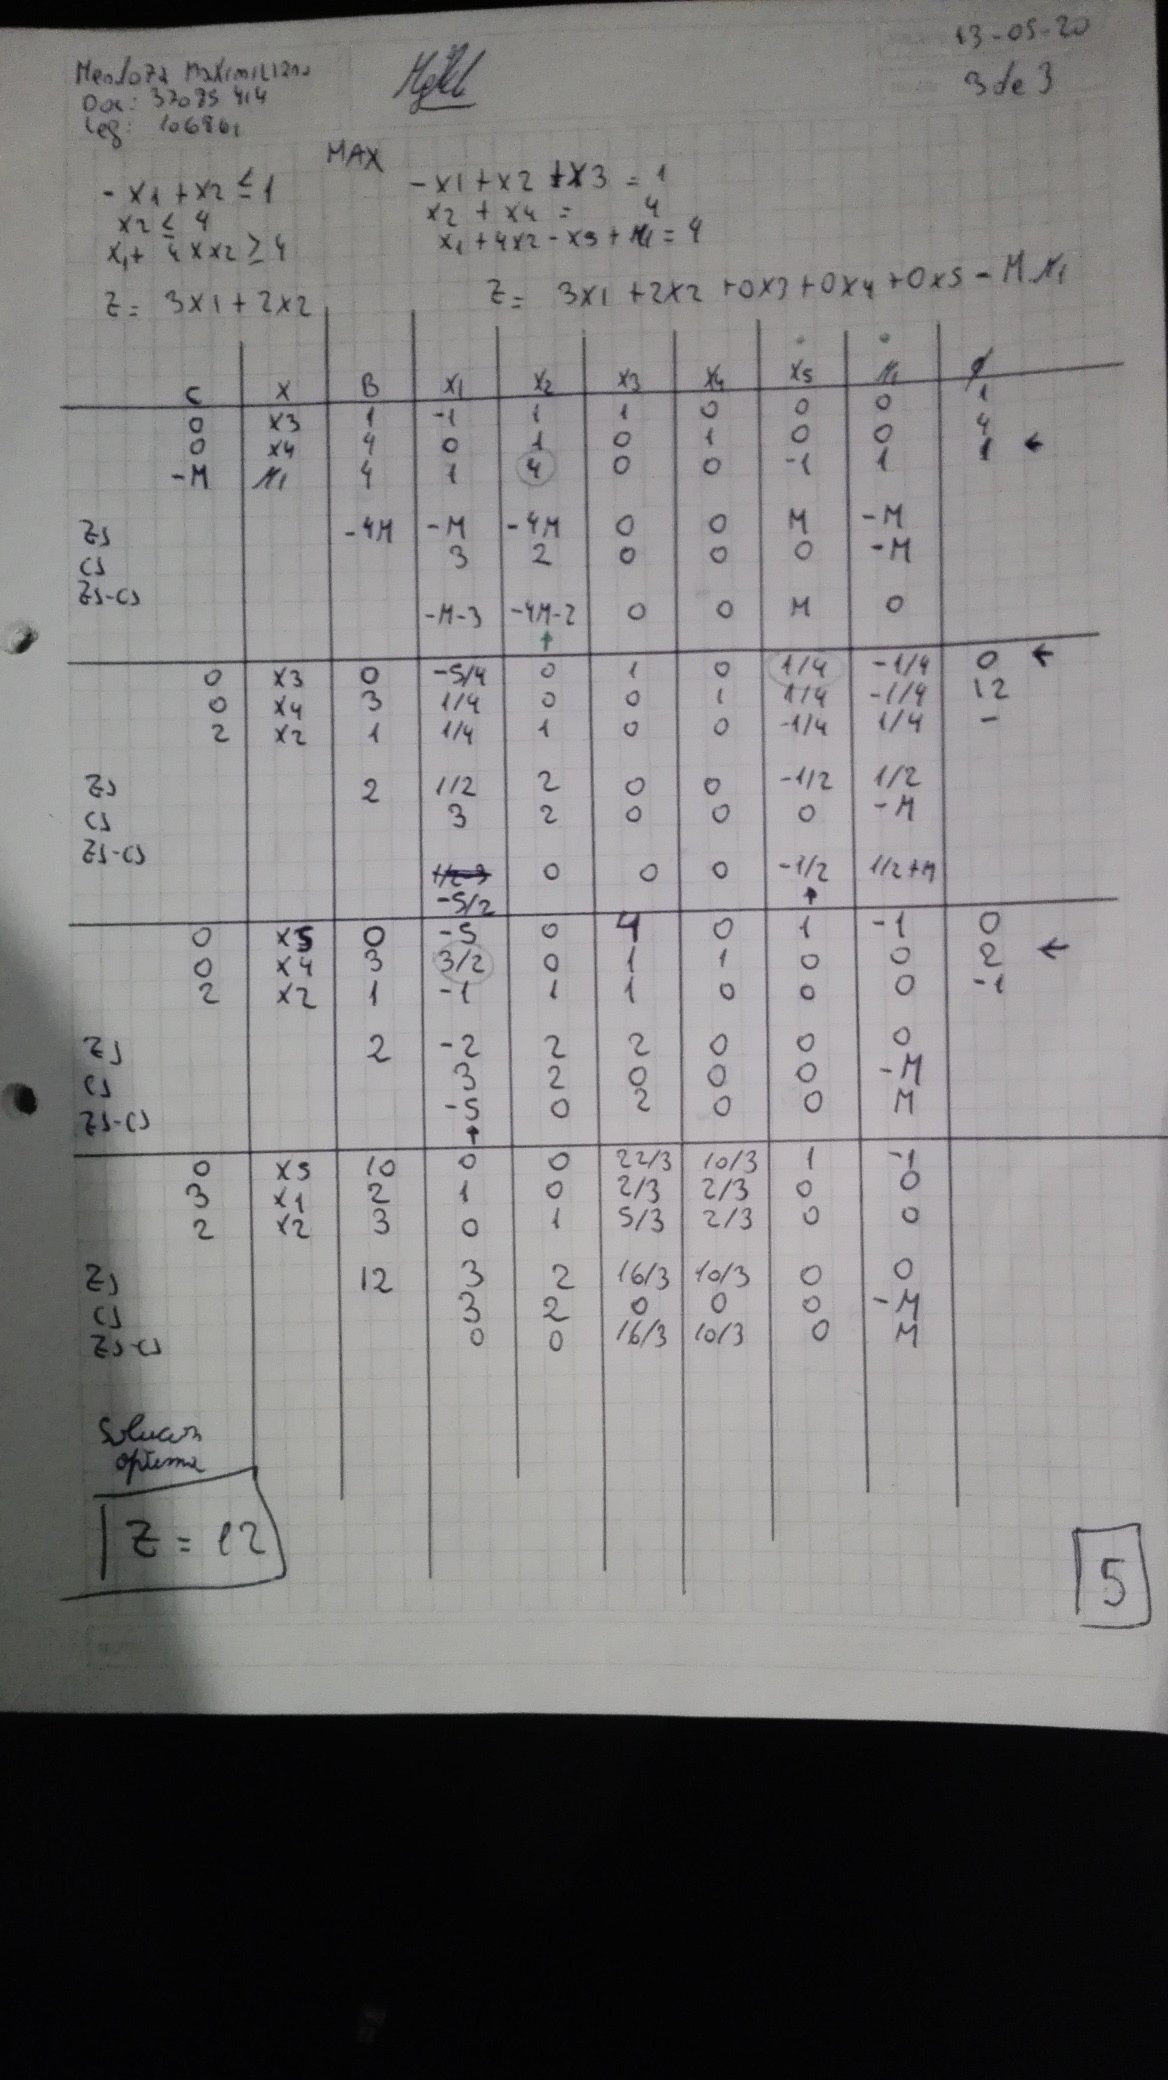 Mendoza Maximiliano
Doc: 37085 414
Leg: 106861
13-05-20
3 de 3
MAX
-x1 + x2 ≤ 1
x2 ≤ 4
x1 + 4 x x2 ≥ 4
Z = 3x1 + 2x2
-x1 + x2 + x3 = 1
x2 + x4 = 4
x1 + 4x2 - x5 + M1 = 4
Z = 3x1 + 2x2 + 0x3 + 0x4 + 0x5 - M.M1
C X B X1 X2 X3 X4 X5 M1 ϕ
0 X3 1 -1 1 1 0 0 0 1
0 X4 4 0 1 0 1 0 0 4
-M M1 4 1 4 0 0 -1 1 1 ←
ZJ -4M -M -4M 0 0 M -M
CJ 3 2 0 0 0 -M
ZJ-CJ -M-3 -4M-2 0 0 M 0
↑
0 X3 0 -5/4 0 1 0 1/4 -1/4 0 ←
0 X4 3 1/4 0 0 1 1/4 -1/4 12
2 X2 1 1/4 1 0 0 -1/4 1/4 -
ZJ 2 1/2 2 0 0 -1/2 1/2
CJ 3 2 0 0 0 -M
ZJ-CJ 1/2-3 0 0 0 -1/2 1/2+M
-5/2 ↑
0 X5 0 -5 0 4 0 1 -1 0
0 X4 3 3/2 0 1 1 0 0 2 ←
2 X2 1 -1 1 1 0 0 0 -1
ZJ 2 -2 2 2 0 0 0
CJ 3 2 0 0 0 -M
ZJ-CJ -5 0 2 0 0 M
↑
0 X5 10 0 0 22/3 10/3 1 -1
3 X1 2 1 0 2/3 2/3 0 0
2 X2 3 0 1 5/3 2/3 0 0
ZJ 12 3 2 16/3 10/3 0 0
CJ 3 2 0 0 0 -M
ZJ-CJ 0 0 16/3 10/3 0 M
Solucion
optima
Z = 12
5